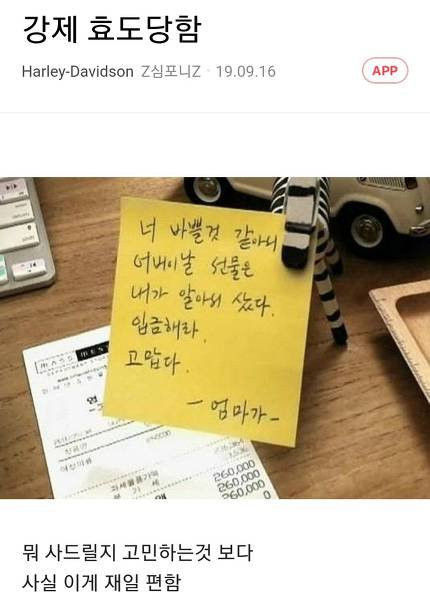 강제 효도당함
Harley-Davidson Z심포니Z · 19.09.16
APP
너 바쁠것 같아서
어버이날 선물은
내가 알아서 샀다.
입금해라.
고맙다.
- 엄마가 -
MASS
260,000
260,000
260,000
뭐 사드릴지 고민하는것 보다
사실 이게 재일 편함